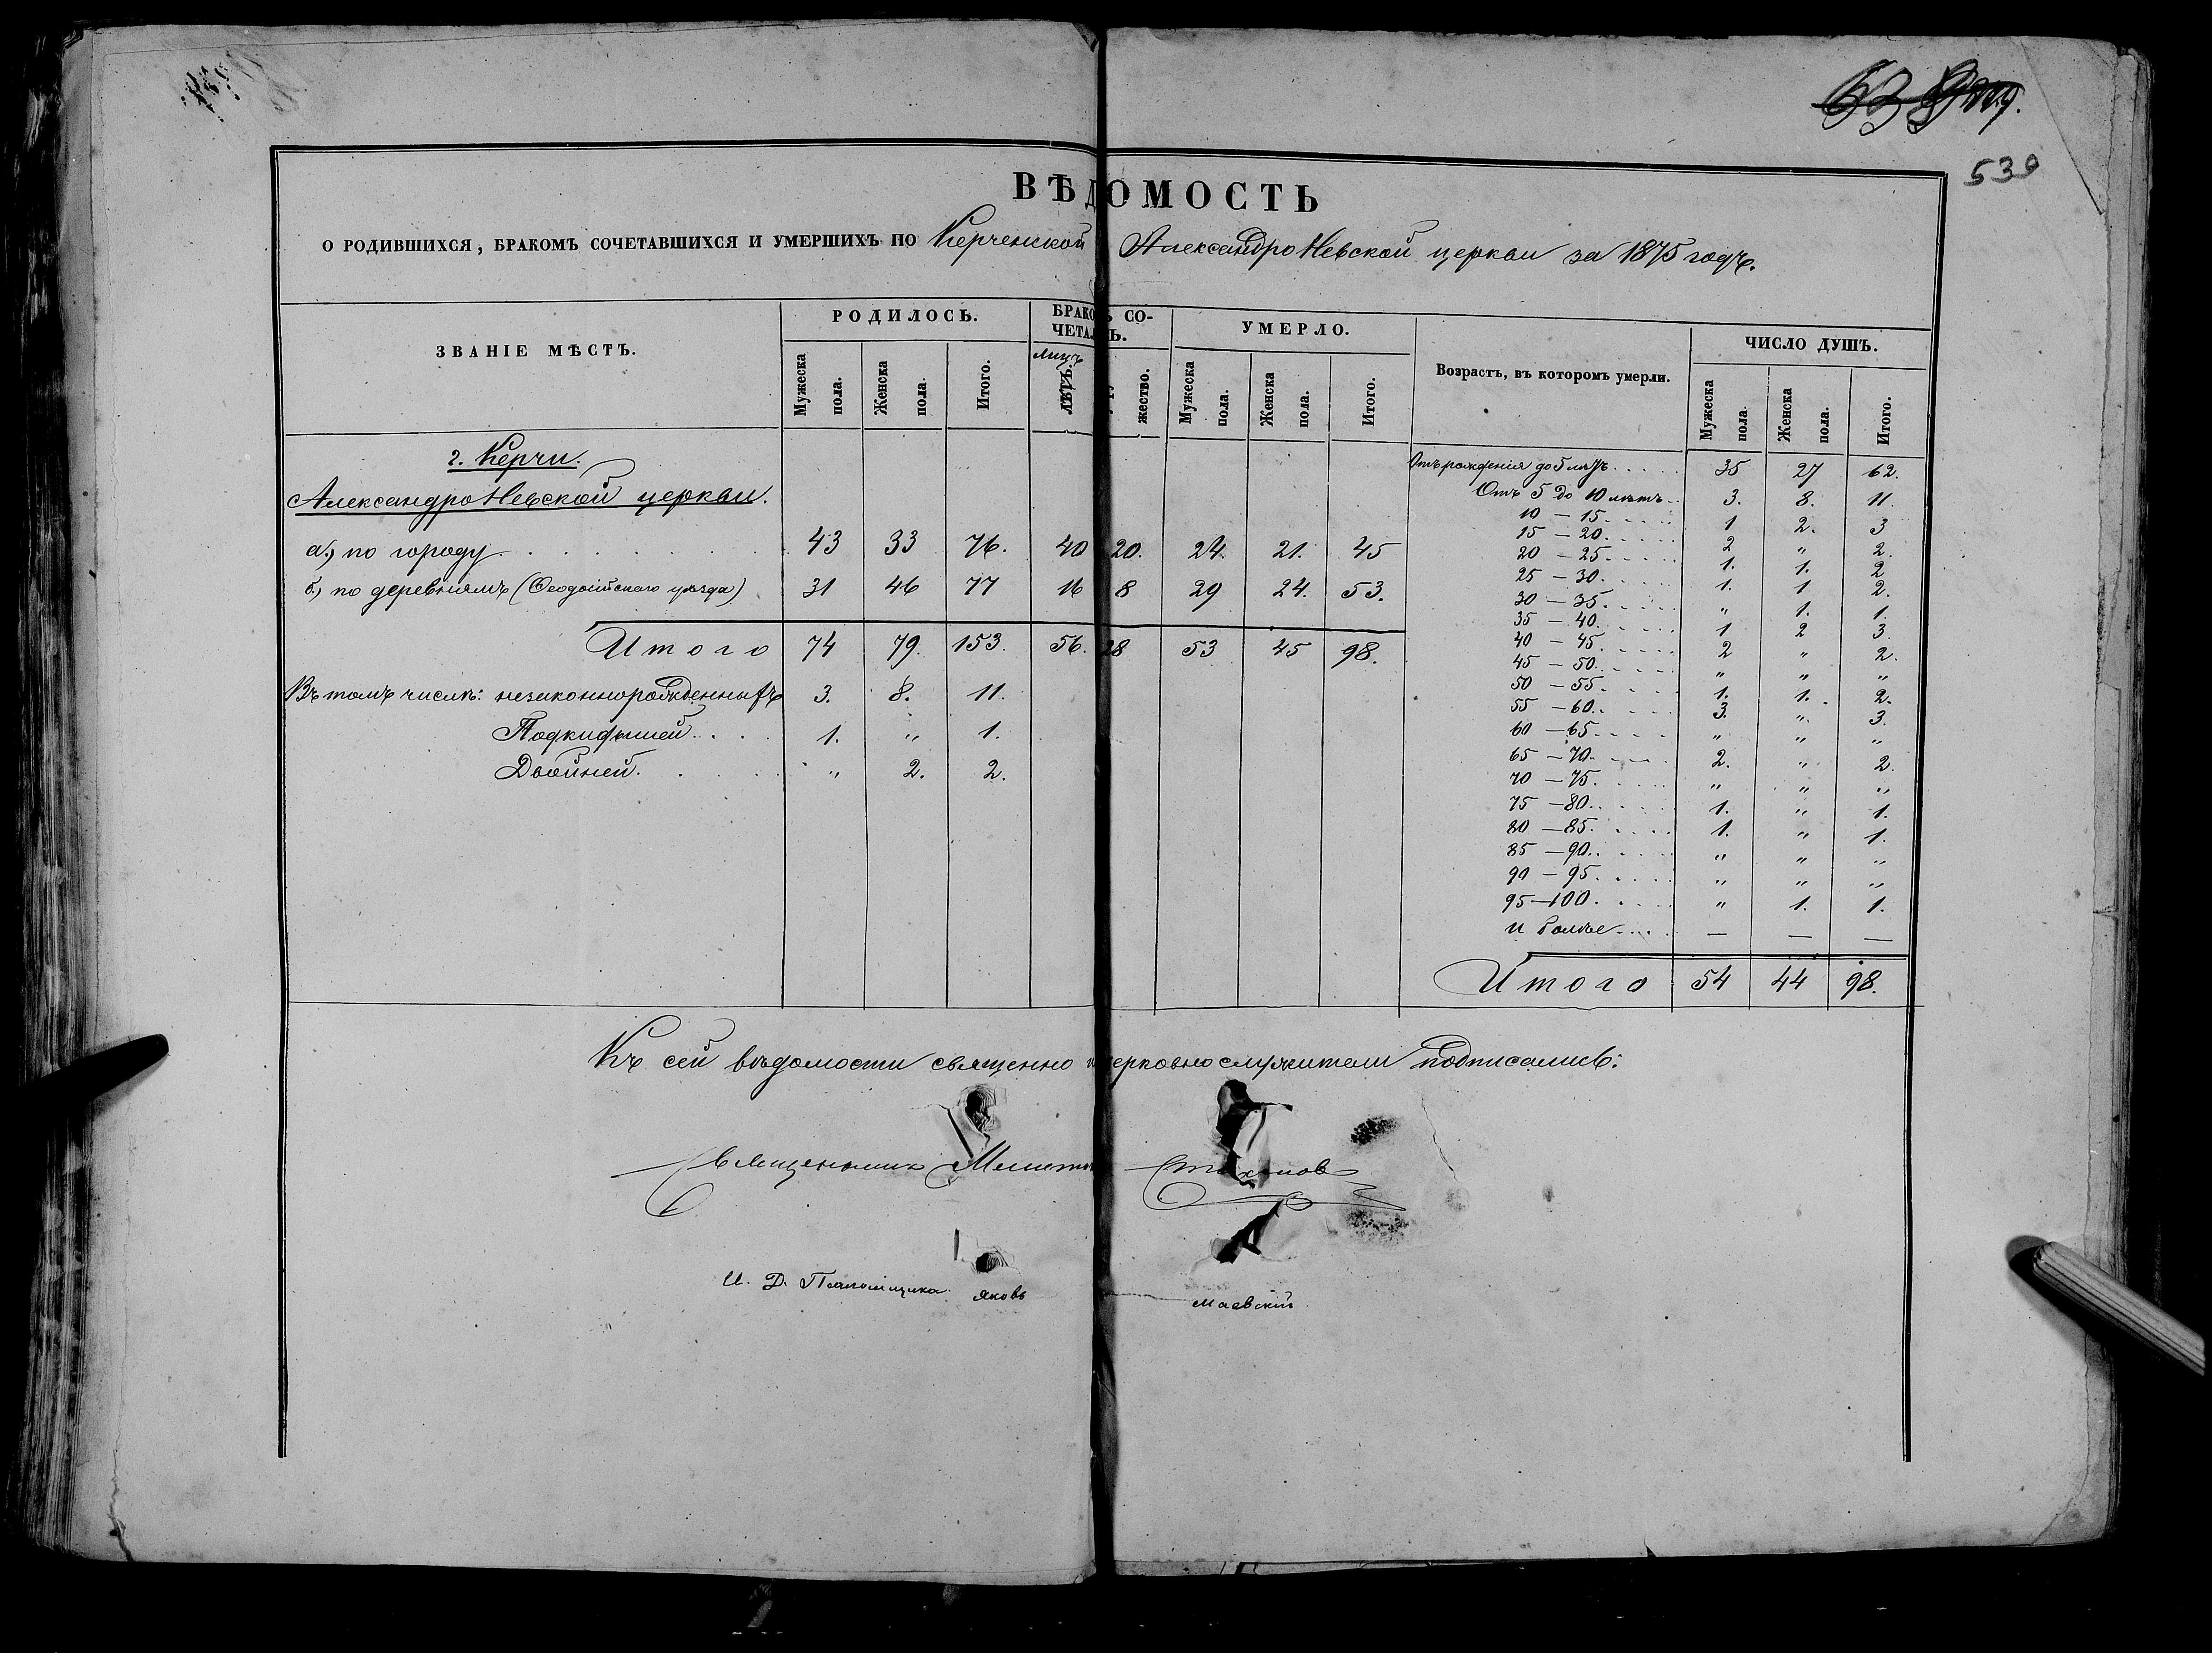 539
ВѢДОМОСТЬ
О РОДИВШИХСЯ, БРАКОМЪ СОЧЕТАВШИХСЯ И УМЕРШИХЪ ПО Керченской АлександроНевской церкви за 1875 годъ.
ЗВАНІЕ МѢСТЪ. РОДИЛОСЬ. БРАКОМЪ СОЧЕТАЛОСЬ. УМЕРЛО. Возрастъ, въ которомъ умерли. ЧИСЛО ДУШЪ.
Мужеска пола. Женска пола. Итого. лицъ жество. Мужеска пола. Женска пола. Итого. Мужеска пола. Женска пола. Итого.
г. Керчи.
АлександроНевской церкви.
а.) по городу 43 33 76. 40 20. 24. 21. 45
б.) по деревнямъ (Ѳеодосійскаго уѣзда) 31 46 77 16 8 29 24. 53.
Итого 74 79. 153. 56. 28 53 45 98.
Въ томъ числѣ: незаконнорожденныхъ 3. 8. 11.
Подкидышей 1. " 1.
Двойней. " 2. 2.
Отъ рожденія до 5 лѣтъ 35 27 62.
Отъ 5 до 10 лѣтъ 3. 8. 11.
10 — 15. 1 2. 3
15 — 20. 2 " 2.
20 — 25. 1. 1. 2
25 — 30. 1. 1 2.
30 — 35. " 1. 1.
35 — 40. 1 2 3
40 — 45. 2 " 2.
45 — 50. " " "
50 — 55. 1. 1. 2.
55 — 60. 3. " 3.
60 — 65. " " "
65 — 70. 2. " 2.
70 — 75. " " "
75 — 80. 1. " 1.
80 — 85. 1. " 1.
85 — 90. " " "
90 — 95. " " "
95 — 100. " 1. 1.
и болѣе — — —
Итого 54 44 98.
Къ сей вѣдомости священно церковнослужители подписались:
Священникъ Стаханов
И. Д. Псаломщика Яковъ Маевскій